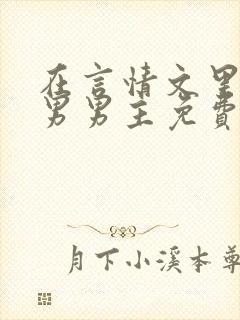 在言情文里
男男主免費
月下小溪本尊